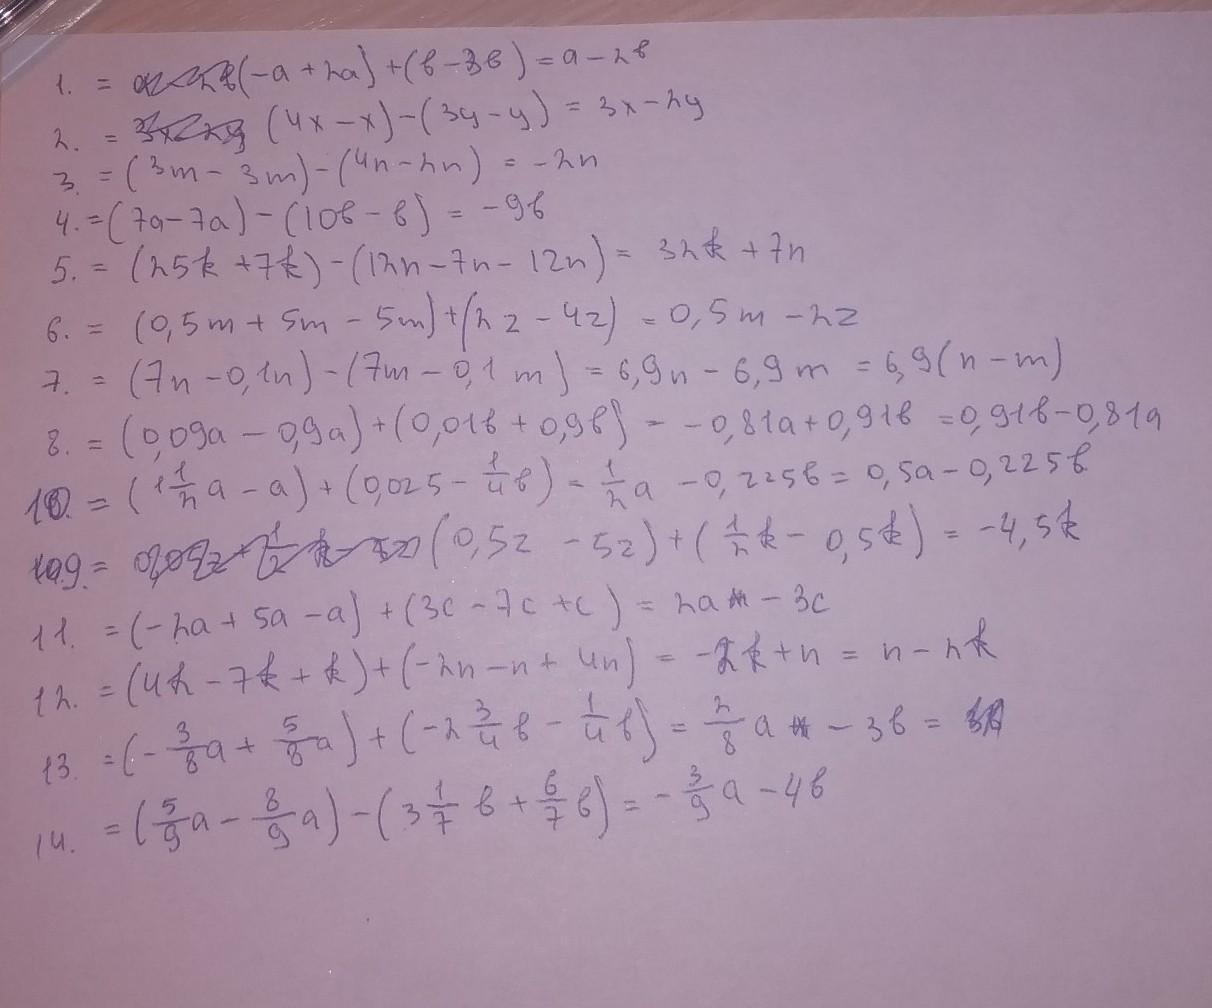 1. = (-a + 2a) + (в - 3в) = a - 2в
2. = (4x - x) - (3y - y) = 3x - 2y
3. = (3m - 3m) - (4n - 2n) = -2n
4. = (7a - 7a) - (10в - в) = -9в
5. = (25k + 7k) - (12n - 7n - 12n) = 32k + 7n
6. = (0,5m + 5m - 5m) + (2z - 4z) = 0,5m - 2z
7. = (7n - 0,1n) - (7m - 0,1m) = 6,9n - 6,9m = 6,9(n - m)
8. = (0,09a - 0,9a) + (0,01в + 0,9в) = -0,81a + 0,91в = 0,91в - 0,81a
10. = (1 1/2 a - a) + (0,025 - 1/4 в) = 1/2 a - 0,225в = 0,5a - 0,225в
9. = (0,5z - 5z) + (1/2 k - 0,5k) = -4,5k
11. = (-2a + 5a - a) + (3c - 7c + c) = 2a - 3c
12. = (4k - 7k + k) + (-2n - n + 4n) = -2k + n = n - 2k
13. = (-3/8 a + 5/8 a) + (-2 3/4 в - 1/4 в) = 2/8 a - 3в =
14. = (5/9 a - 8/9 a) - (3 1/7 в + 6/7 в) = -3/9 a - 4в